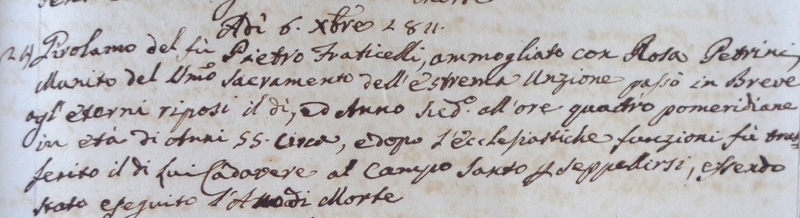 Adì 6. Xbre 1811.
24) Girolamo del fù Pietro Fraticelli, ammogliato con Rosa Petrini,
Munito del Umo Sacramento dell'estrema Unzione passò in Breve
agl'eterni riposi il dì, ed Anno sudo. all'ore quattro pomeridiane
in età di Anni 55. circa, e dopo l'ecclesiastiche funzioni fù tras-
ferito il di lui Cadavere al Campo Santo p seppellirsi, essendo
stato eseguito l'Atto di Morte